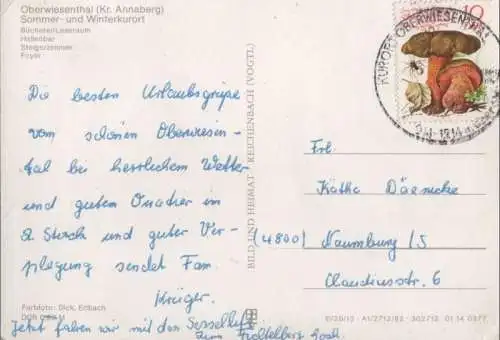 Oberwiesenthal (Kr. Annaberg)
Sommer- und Winterkurort
Bücherei/Leseraum
Hallenbar
Steigerzimmer
Foyer
Die besten Urlaubsgrüße
vom schönen Oberwiesen-
tal bei herrlichem Wetter
und gutem Quatier in
2. Stock und guter Ver-
pflegung sendet Fam.
Krüger.
Jetzt fahren wir mit den Sessellift
zum Fichtelberg hoch.
Farbfoto: Dick, Erlbach
DDR M
BILD UND HEIMAT REICHENBACH (VOGTL)
10
KURORT OBERWIESENTHAL
Frl.
Käthe Däenicke
(4800) Naumburg/S
Claudiusstr. 6
A1/2712/82 302712 01 14 0377